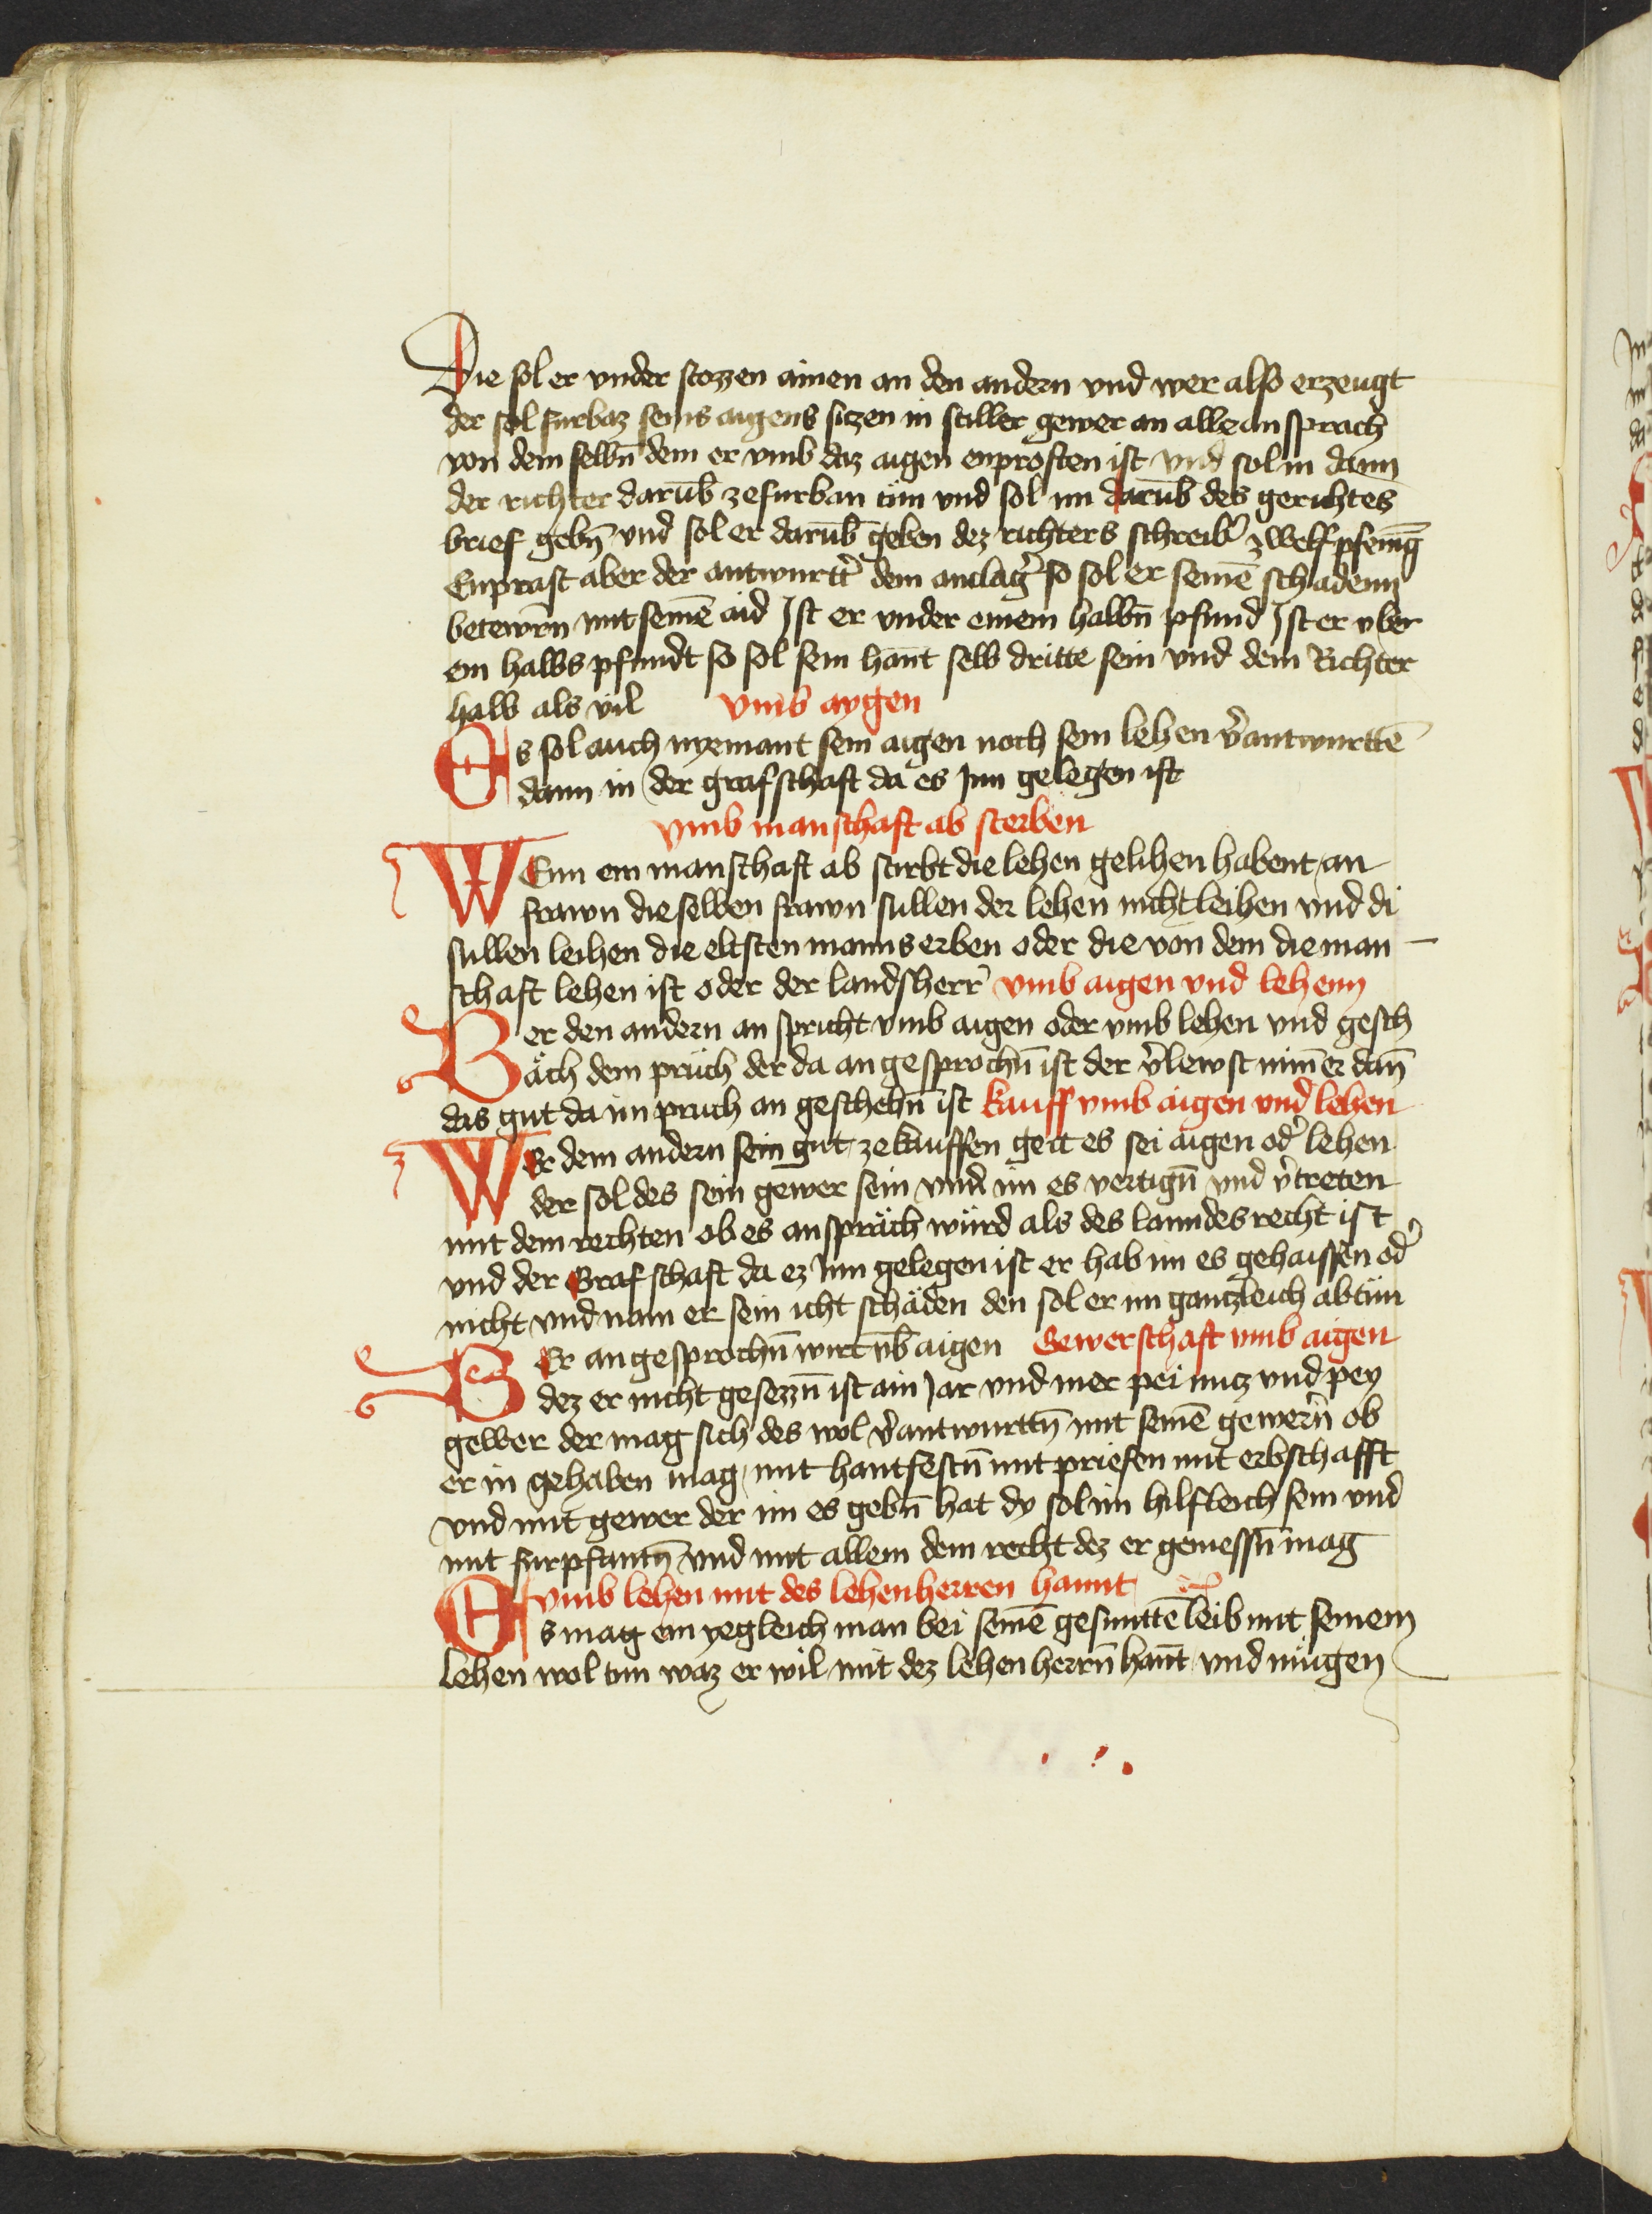 Die sol er vnder stozzen ainen an den andern vnd wer also erzeugt
der sol furbaz seins aigens sizen in stiller gewer an alle an sprach
von dem selbn̄ dem er vmb daz aigen enprosten ist vnd sol in dann
der richter darūb ze furban tün vnd sol im darūb des gerichtes
brief gebn̄ vnd sol er darūb geben dez richters schreib̉ zwelf pfenīg
Enprast aber der antwurtt̉ dem anclag̉ so sol er seinē schadenn
betewrn̄ mit seinē aid Ist er vnder einem halbn̄ pfund Ist er vber
ein halbs pfundt so sol sein han̄t selb dritte sein vnd dem Richter
halb als vil vmb aygen
Es sol auch nyemant sein aigen noch sein lehen v̉antwurttē
dann in der grafschaft da es Inn gelegen ist
vmb manschaft ab sterben
WEnn ein manschaft ab stirbt die lehen gelihen habent an
frawn die selben frawn sullen der lehen nicht leihen vnd di
sullen leihen die eltsten manns erben oder die von dem die man
schaft lehen ist oder der landsherr̉ vmb aigen vnd lehenn
Wer den andern an spricht vmb aigen oder vmb lehen vnd gesch
äch dem prüch der da an gesprochn̄ ist der v̉lewst nim̄er dan̄
das gut da im pruch an geschehn̄ ist kauff vmb aigen vnd lehen
WEr dem andern sein gut ze kauffen geit es sei aigen od̉ lehen
der sol des sein gewer sein vnd im es vertign̄ vnd v̉treten
mit dem rechten ob es anspräch würd als des lanndes recht ist
vnd der Grafschaft da ez Inn gelegen ist er hab im es gehaissen od̉
nicht vnd nam er sein icht schäden den sol er im gantzleich abtün
WEr angesprochn̄ wirt vb̄ aigen Gewerschaft vmb aigen
dez er nicht gesezzn̄ ist ain Jar vnd mer pei nutz vnd pey
gewer der mag sich des wol v̉antwurttn̄ mit seinē gewern̄ ob
er in gehaben mag mit hantfestn̄ mit priefen mit erbschafft
vnd mit gewer der im es gebn̄ hat dy sol im hilfleich sein vnd
mit furpfantn̄ vnd mit allem dem recht dez er geniessn̄ mag
vmb lehen mit des lehenherren hannt
Es mag ein yegleich man bei seinē gesunttē leib mit seinem
lehen wol tun waz er wil mit dez lehen herrn̄ han̄t vnd mügen